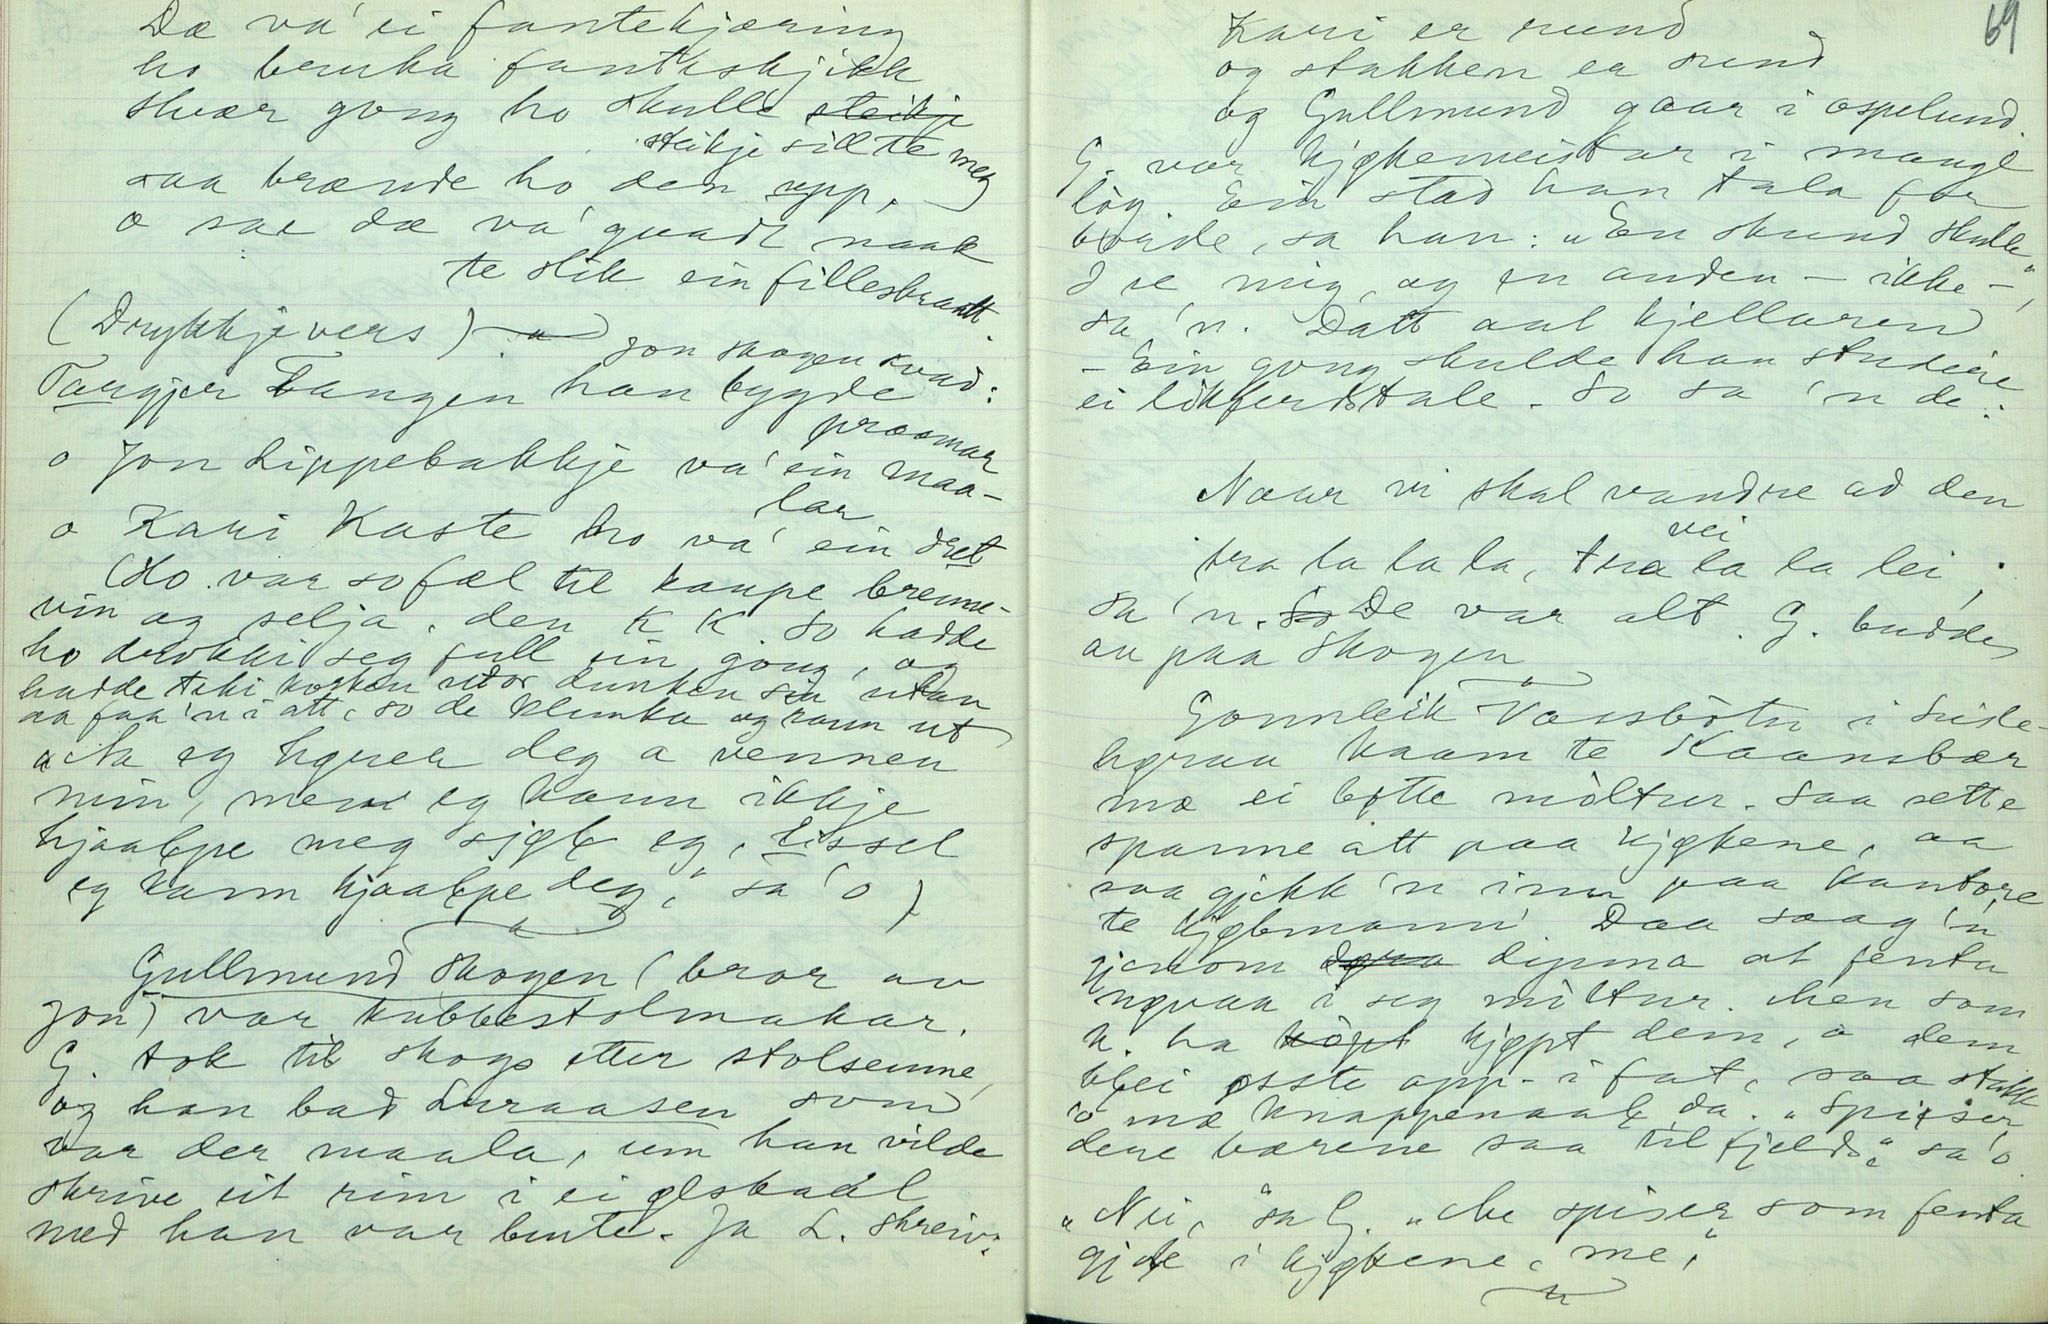 Dæ va' ei fantekjæring
ho bruka fanteskjikk
Hvær gong ho skulle steikje
steikje sill te meg
saa brænde ho den upp,
o sae dæ va' goadt naak
te slik ein fillesbrandt.
(Drykkjevers)
Jon skogen kvad:
Targjer Tangen han bygde
præsmar
o Jon Lippebakkje va' ein maa-
lar
o Kari Kaste ho va' ein dret
(Ho var so fæl til kaupe brenne-
vin og selja, den K K. So hadde
ho drukki seg full ein gong, og
hadde teki korken utor dunken sin utan
aa faa 'n i att, so de klunka og rann ut
"Ja eg høyrer deg a vennen
min, men eg kann ikkje
hjaalpe meg sjøl eg, tissel
eg kann hjaalpe deg," sa 'o)
Gullmund Skogen (bror av
Jon) var kubbestolmakar.
G. tok til skogs etter stolsemne,
og han bad Luraasen som
var der maala, um han vilde
skrive eit rim i ei ølskaal
med han var burte. Ja L. skreiv:
69
Kari er rund
og stakken er rund
og Gullmund gaar i ospelund.
G. var kjøkemeistar i mange
lag. Ein stad han tala for
borde, sa han: "En stund skulle
I se mig, og en anden – ikke –",
sa 'n. Datt aat kjellaren
– Ein gong skulde han studere
ei likferdstale. So sa 'n de:
Naar vi skal vandre ad den
vei
tra la la la, tra la la lei,
sa 'n. So De var alt. G. budde
au paa Skogen
Gonnleik Vaasbotn i Seide-
høraa kaam te Kaansbær
mæ ei bøtte mòltur. Saa sette
spanne att paa kjøkene, aa
saa gjekk 'n inn paa kantore
te kjøbmann'. Daa saag 'n
gjenom døra dynna at jenta
nøvaa i seg mòltur. Men som
K. ha köpt kjøpt dem, o dem
blei øsste opp i fat, saa stakk
'o mæ knappenaal da. "Spiser
dere bærene saa til fjelds," sa 'o.
"Nei," sa G. "Me spiser som jenta
gjole i kjøkene, me."